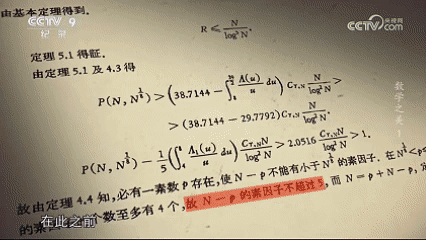 CCTV 9
纪录
央视网
CCTV.com
由基本定理得到.
R ≤ N/log³N.
定理 5.1 得証.
由定理 5.1 及 4.3 得
P(N, N^{1/8}) > (38.7144 − ∫ Λ(u)/u du) C_{T,N} N/log²N >
> (38.7144 − 29.7792) C_{T,N} N/log²N
P(N, N^{1/8}) − 1/5 (∫ Λ₁(u)/u du) C_{T,N} N/log²N > 2.0516 C_{T,N} N/log²N > 1,
故由定理 4.4 知, 必有一素数 p 存在, 使 N − p 不能有小于 N^{1/8} 的素因子. 在 N^{1/8} < p
的素 个数至多有 4 个, 故 N − p 的素因子不超过 5, 而 N = p + N − p, 定
数学之美
在此之前